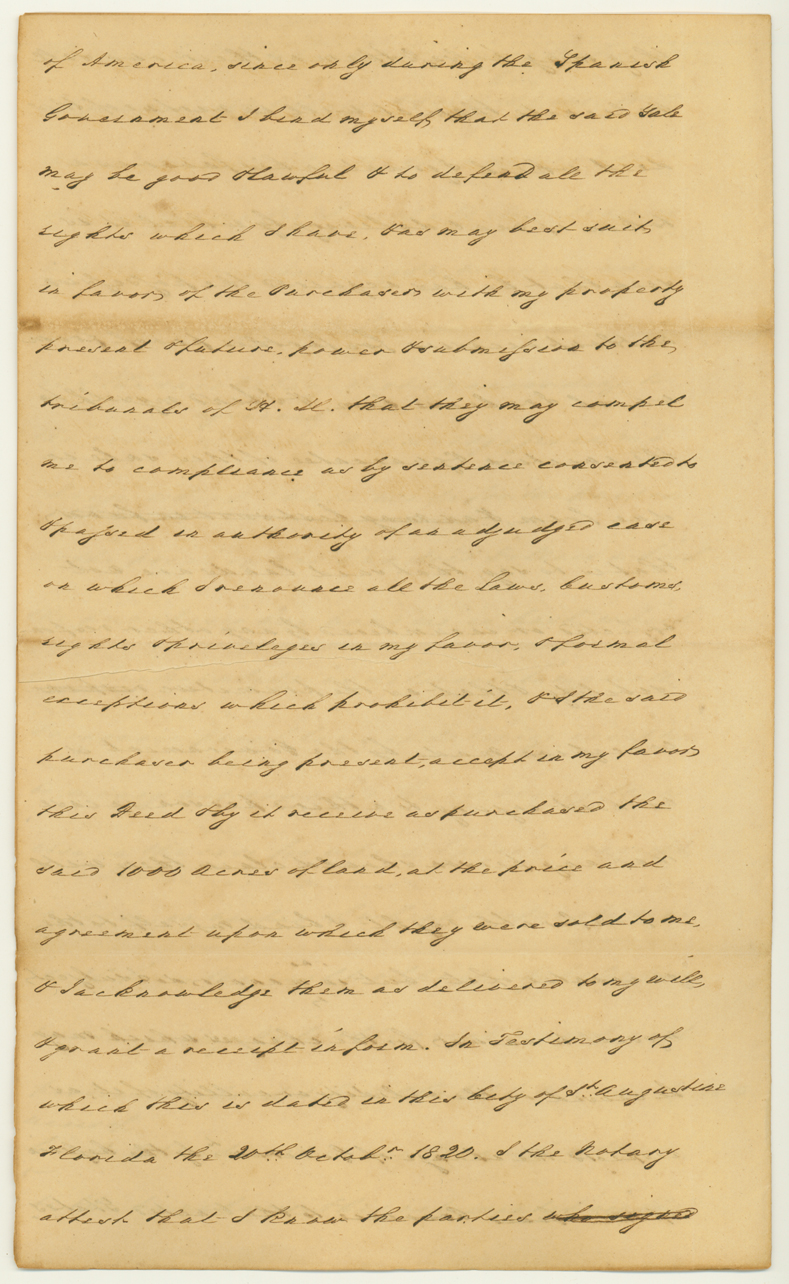 of America, since only during the Spanish
Government I bind myself, that the said Sale
may be good & lawful & to defend all the
rights which I have, & as may best suit,
in favor, of the Purchaser, with my property
present & future, power & submission to the,
tribunals of H. M. that they may compel
me to compliance as by sentence consented to
& passed in authority of an adjudged case
on which I renounce all the laws, Customs,
rights & privelages in my favor, & formal
exceptions which prohibit it, & I the said
purchaser being present, accept in my favor
this Deed & by it receive as purchased the
said 1000 Acres of land, at the price and
agreement upon which they were sold to me,
& I acknowledge them as delivered to my will,
& grant a receipt in form. In Testimony of
which this is dated in this City of St. Augustine
Florida the 20th Octobr. 1820. I the Notary
attest that I know the parties who signed